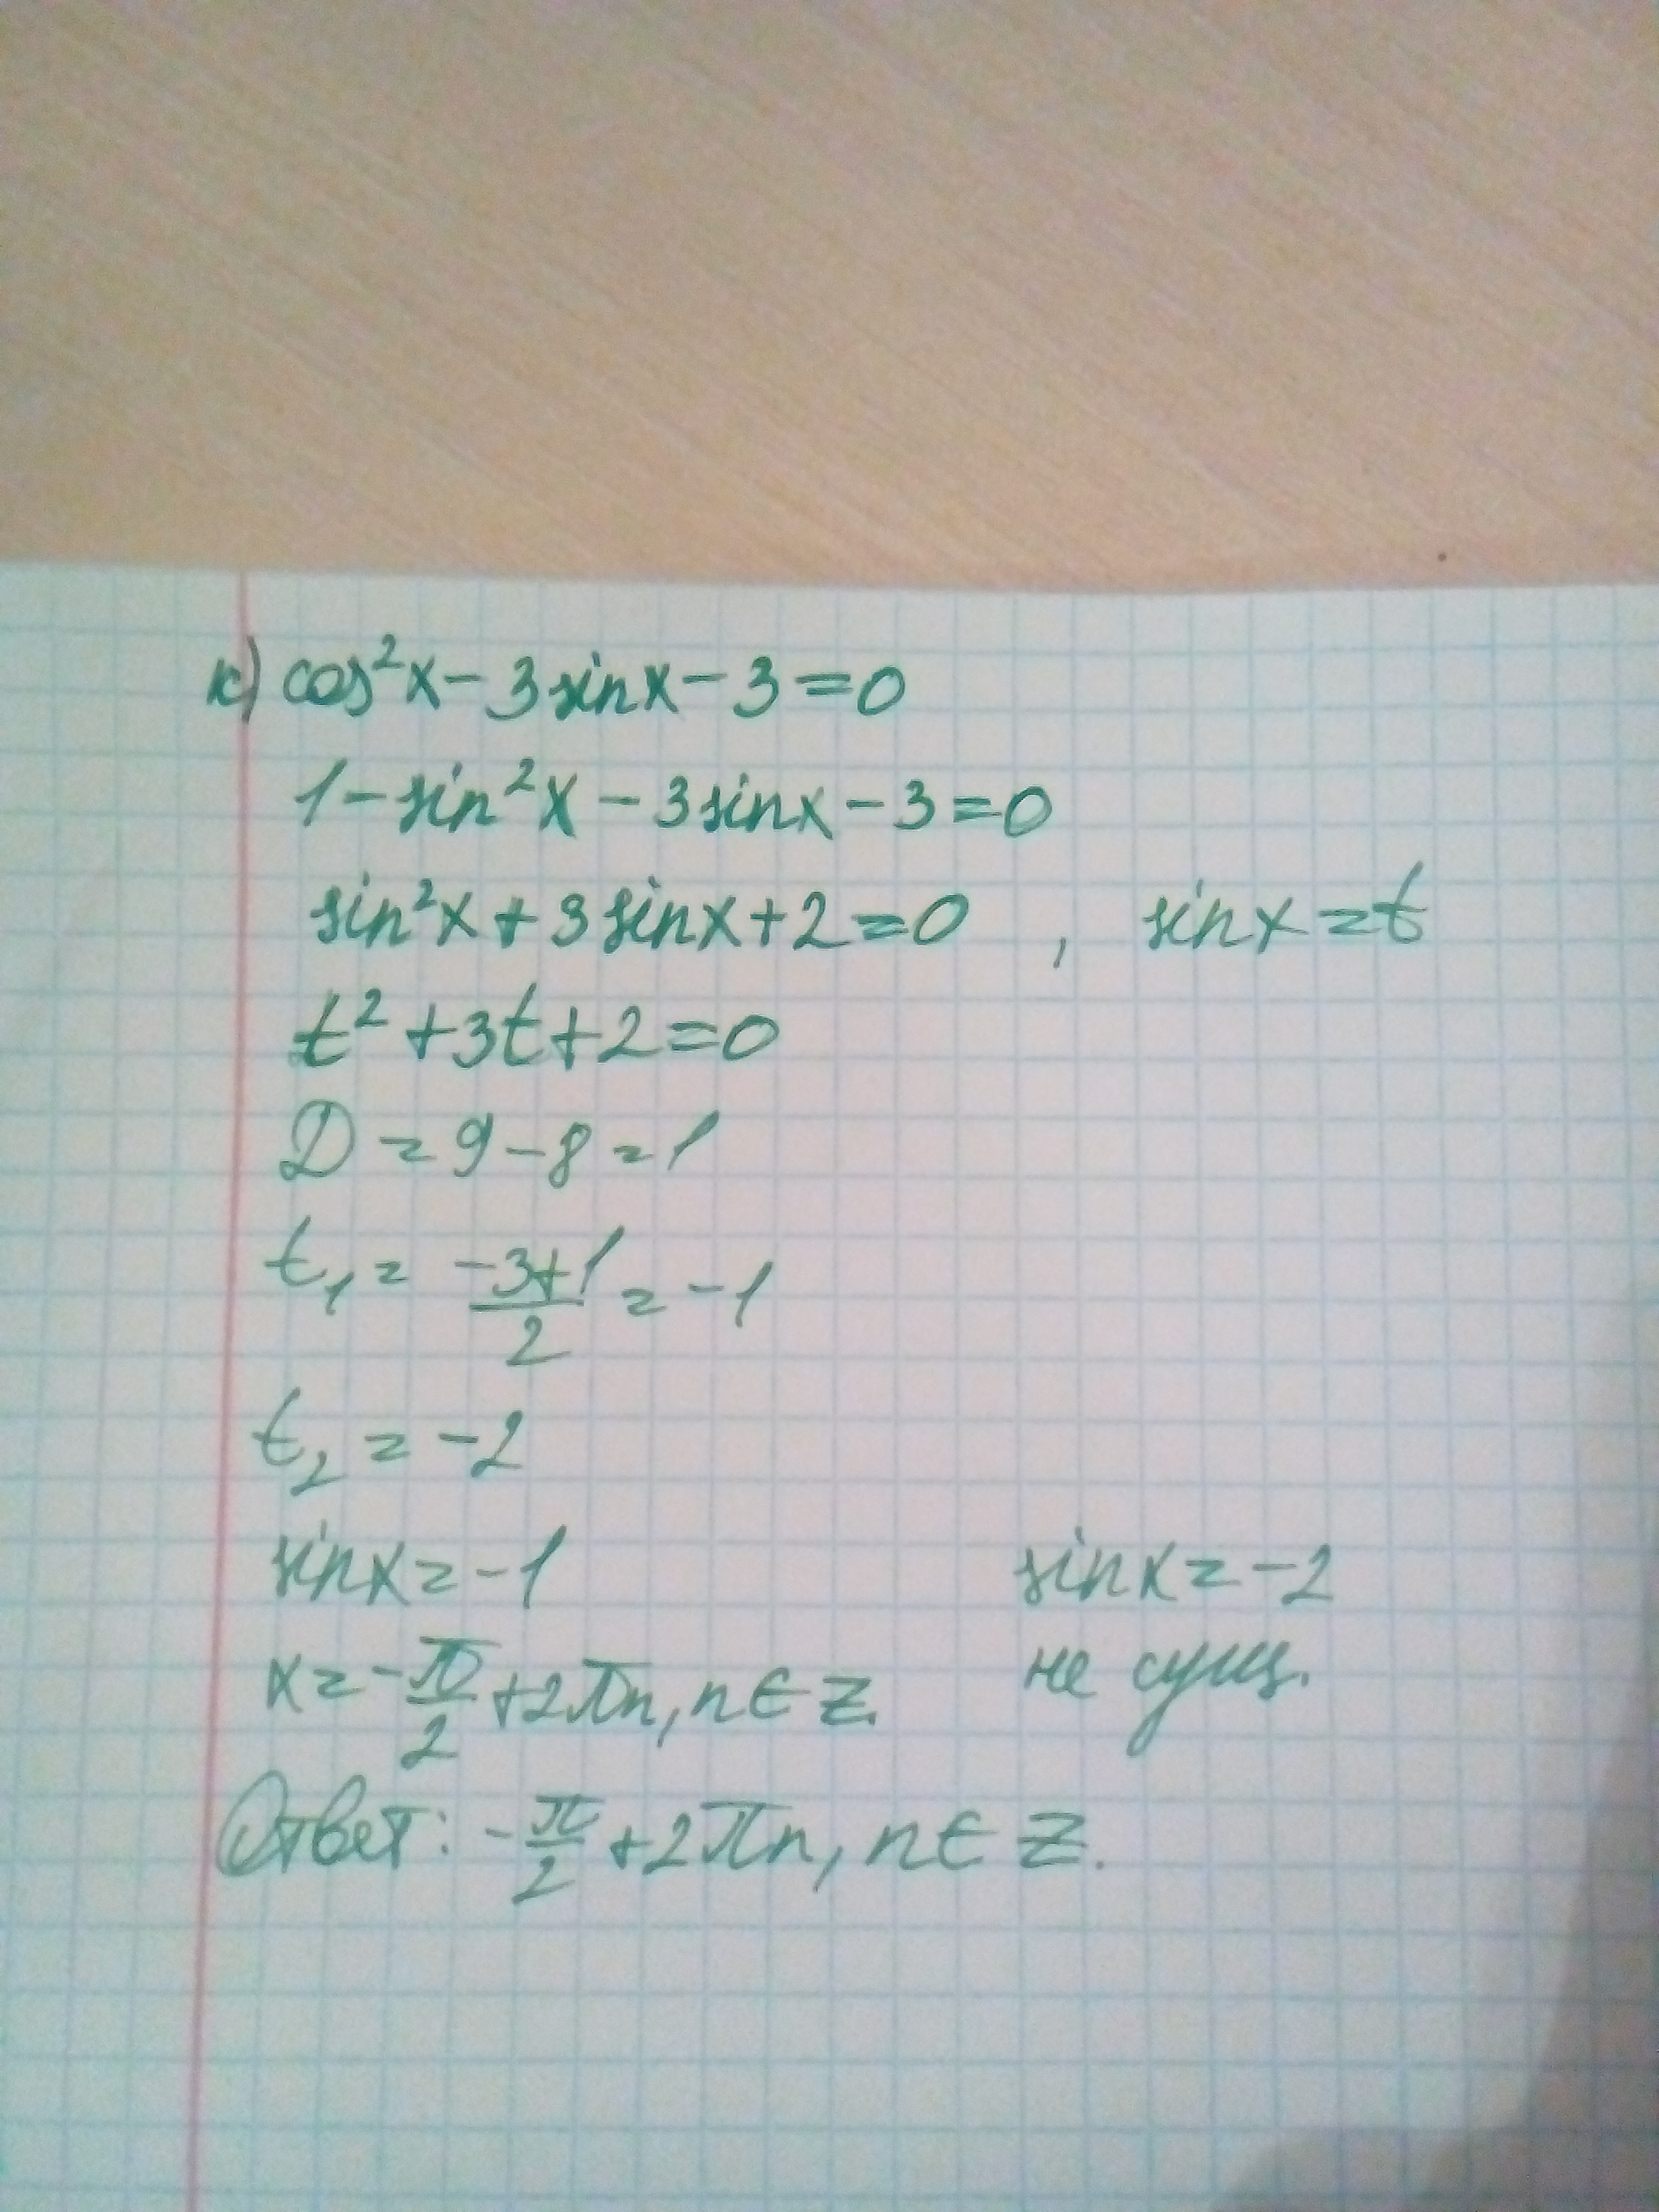 к) cos²x - 3sinx - 3 = 0
1 - sin²x - 3sinx - 3 = 0
sin²x + 3sinx + 2 = 0 , sinx = t
t² + 3t + 2 = 0
D = 9 - 8 = 1
t₁ = (-3+1)/2 = -1
t₂ = -2
sinx = -1 sinx = -2
x = -π/2 + 2πn, n ∈ Z. не сущ.
Ответ: -π/2 + 2πn, n ∈ Z.